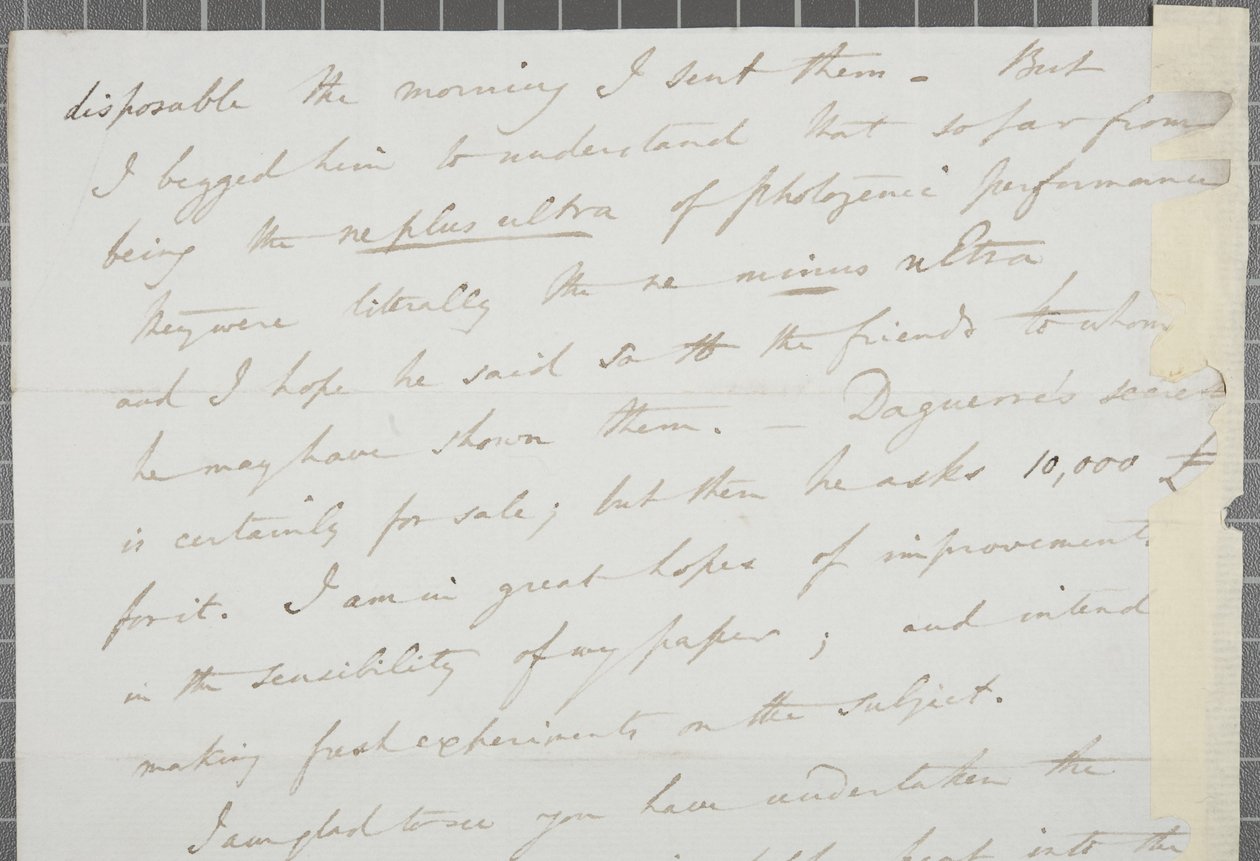 disposable the morning I sent them - But
I begged him to understand that so far from
being the ne plus ultra of photogenic performance
they were literally the ne minus ultra,
and I hope he said so to the friends to whom
he may have shown them. - Daguerre's secret
is certainly for sale; but then he asks 10,000 £
for it. I am in great hopes of improvement
in the sensibility of my paper; and intend
making fresh experiments on the subject.
I am glad to see you have undertaken the
heat into the